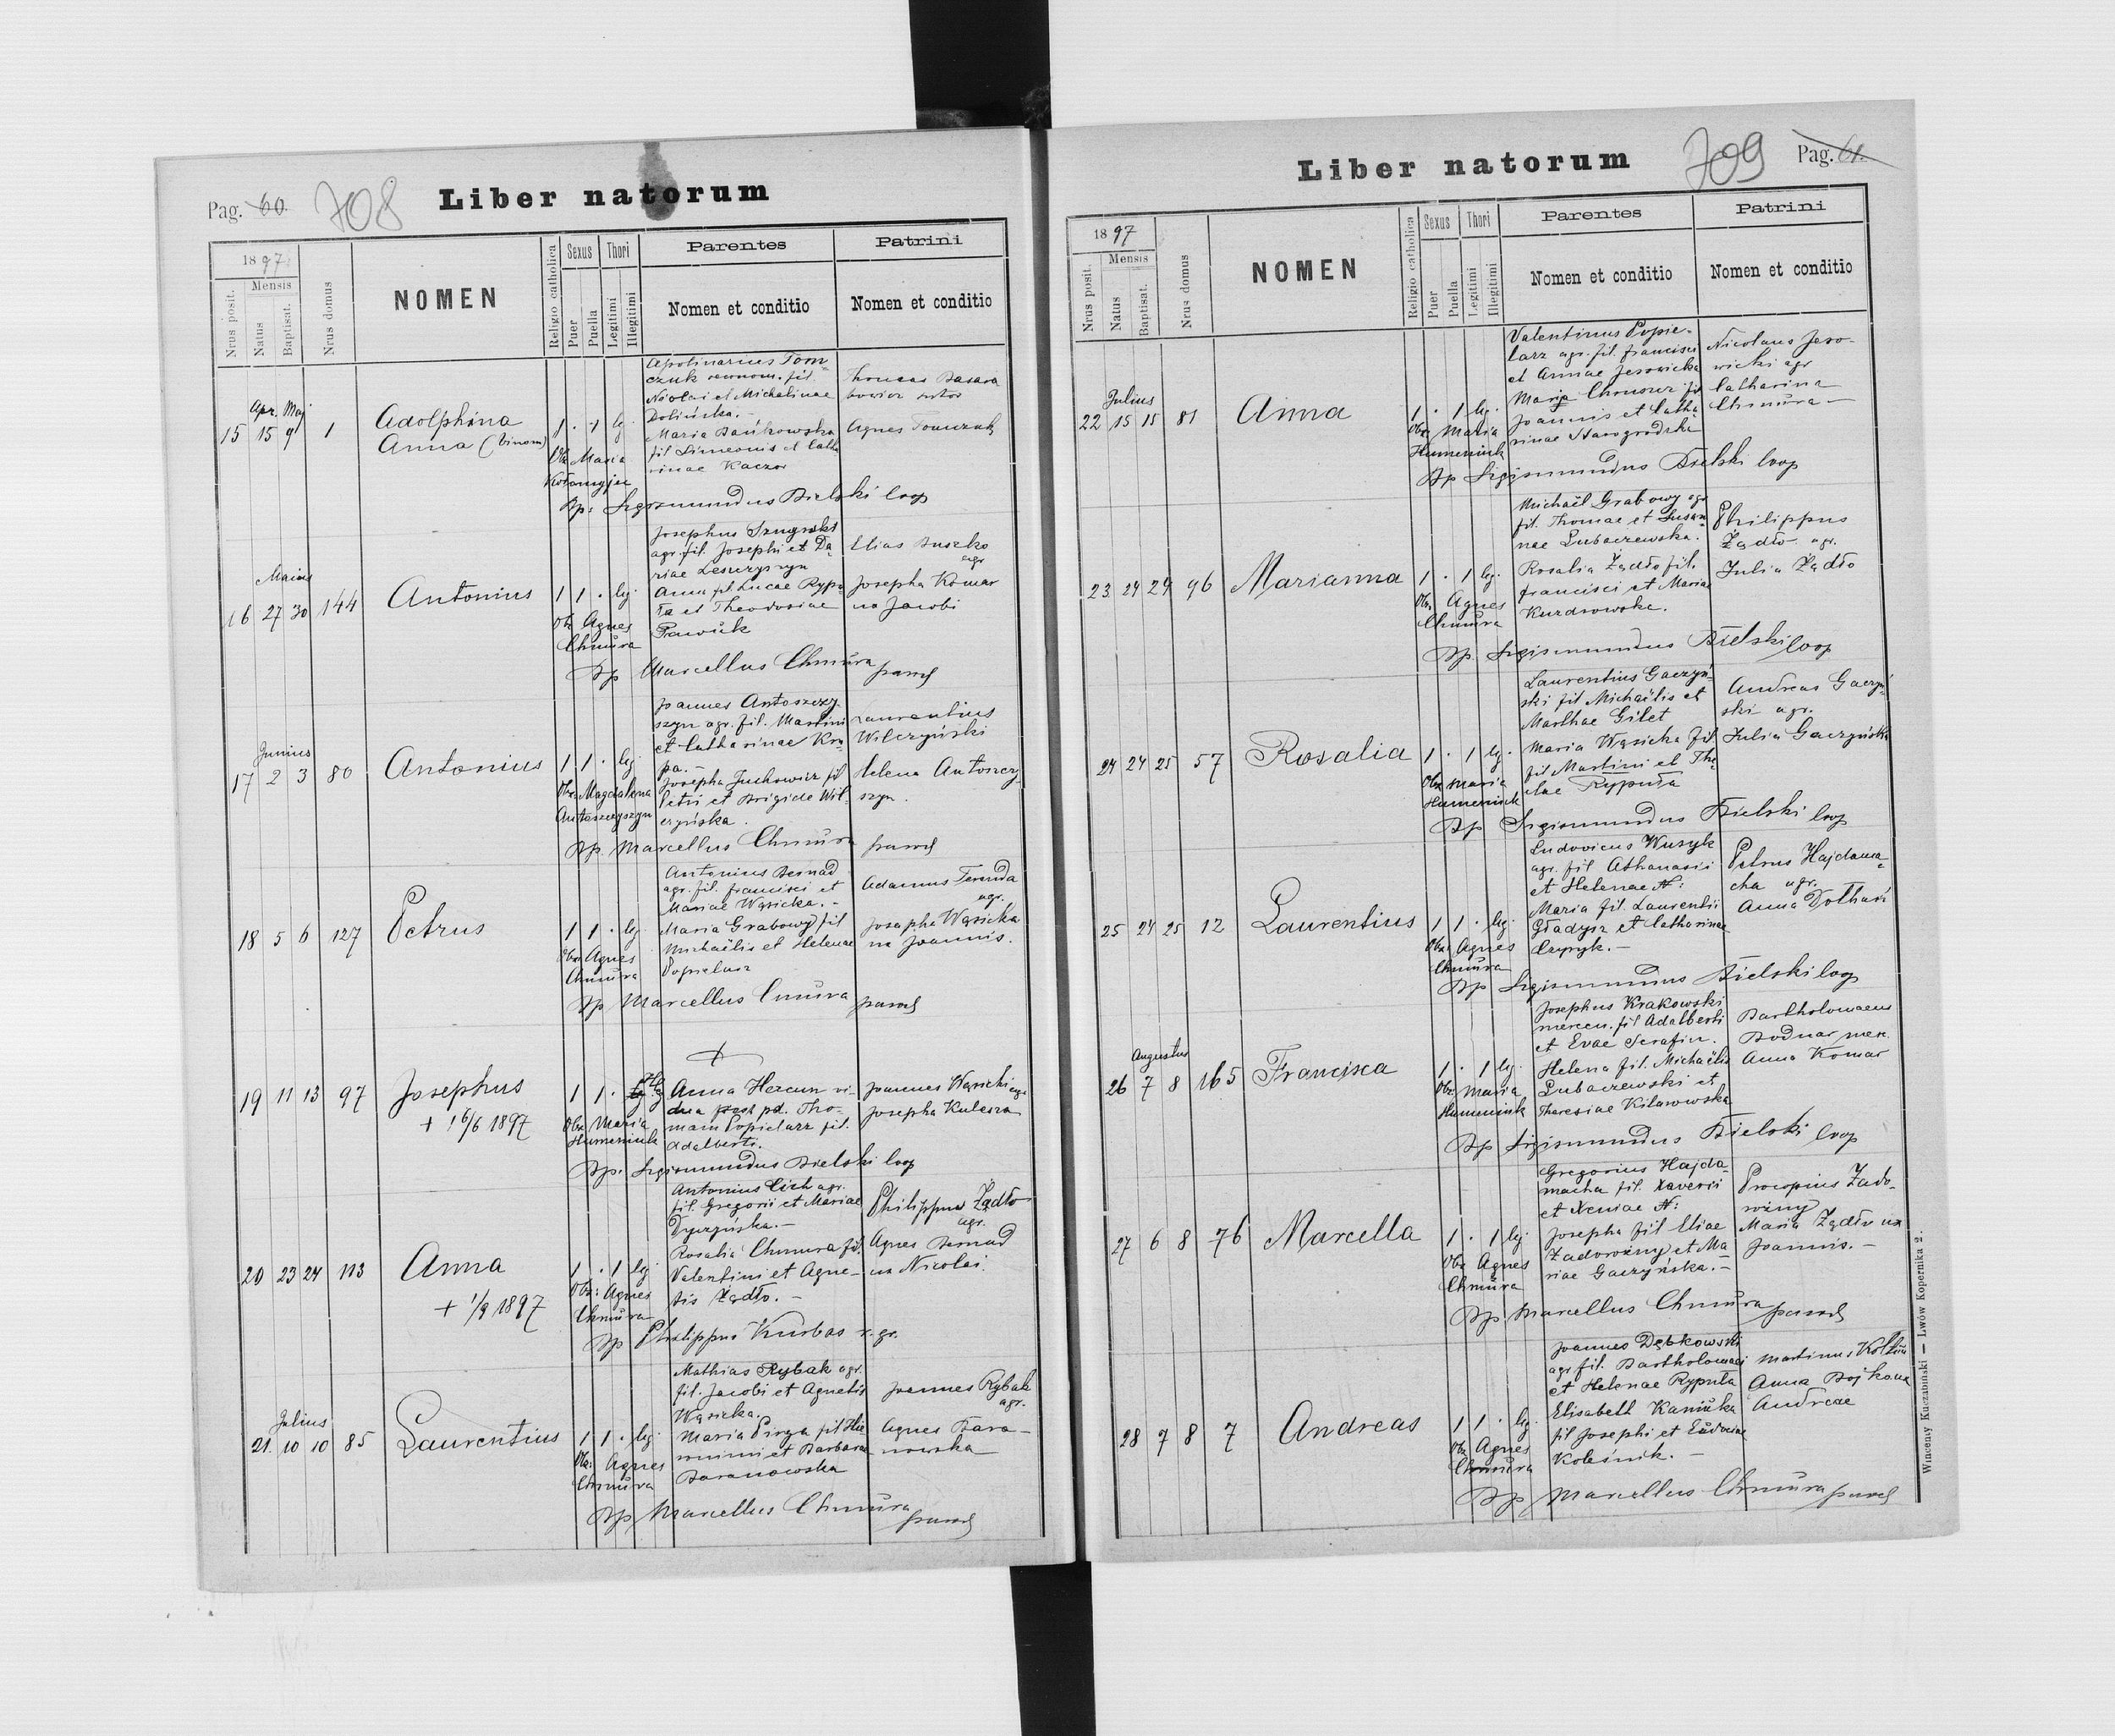 Pag. 60. 708 Liber natorum
1897
Mensis
Nrus posit.
Natus
Baptisat.
Nrus domus
NOMEN
Religio catholica
Sexus
Puer
Puella
Thori
Legitimi
Illegitimi
Parentes
Nomen et conditio
Patrini
Nomen et conditio
Apr. Maj
15 15 9 1
Adolphina
Anna (binom)
1 . 1 lg.
Obs. Maria
Apolinarius Tom
czuk fil.
Nicolai et Michalinae
Dolińska. -
Maria Bańkowska
fil Simeonis et Catha
rinae Kaczor
Thomas Basara
bowicz sutor
Agnes Tomczuk
Bp: Sigismundus Bielski Coop
Maius
16 27 30 144
Antonius
1 1 . leg.
Obs Agnes
Chmüra
Josephus
agr. fil. Josephi et Da
riae Leszczyszyn
Anna fil Lucae Rypu
ła et Theodosiae
Pawük
Elias Buszko
agr
Josepha Komar
ux Jacobi
Bp Marcellus Chmüra
Junius
17 2 3 80
Antonius
1 1 . leg
Obs. Magdalena
Antoszczyszyn
Joannes Antoszczy
szyn agr. fil. Martini
et Catharinae Kru
pa. -
Josepha Juchowicz fil
Petri et Brigide Wil
czyńska.
Laurentius
Wilczyński
Helena Antoszczy
szyn.
Bp. Marcellus Chmüra
18 5 6 127
Petrus
1 1 . leg
Obs Agnes
Chmüra
Antonius Bernad
agr. fil. Francisci et
Mariae Wąsicka. -
Maria Grabowy fil
Michaëlis et Helenae
Popielarz
Adamus Ferenda
agr.
Josepha Wąsicka
ux Joannis.
Bp Marcellus Cmüra
19 11 13 97
Josephus
+ 16/6 1897
1 1 .
Obs Maria
Humeniuk
Anna Hercun vi
dua post pd. Tho-
mam Popielarz fil.
Adalberti.
Joannes Wąsicki agr
Josepha Kulesza
Bp. Sigismundus Bielski Coop
20 23 24 113
Anna
+ 1/9 1897
1 . 1 leg
Obs: Agnes
Chmüra
Antonius Cich agr.
fil. Gregorii et Mariae
Dyczyńska. -
Rosalia Chmura fil.
Valentini et Agne-
tis Żądło. -
Philippus Żądło
agr.
Agnes Bernad
ux Nicolai.
Bp Philippus Kurbas r. gr.
Julius
21 10 10 85
Laurentius
1 1 . leg.
Obs: Agnes
Chmüra
Mathias Rybak agr.
fil. Jacobi et Agnetis
Wąsicka.
Maria Pirga fil Hie
ronimi et Barbarae
Baranowska
Joannes Rybak
agr.
Agnes Bara-
nowska
Bp Marcellus Chmüra
Liber natorum 709 Pag. 61.
1897
Mensis
Nrus posit.
Natus
Baptisat.
Nrus domus
NOMEN
Religio catholica
Sexus
Puer
Puella
Thori
Legitimi
Illegitimi
Parentes
Nomen et conditio
Patrini
Nomen et conditio
Julius
22 15 15 81
Anna
1 . 1 leg.
Obs: Maria
Humeniuk
Valentinus Popie-
larz agr. fil. Francisci
et Annae Jezowicka
Maria Chmura fil
Joannis et Catha
rinae Starogrodzka
Nicolaus Jero-
wicki agr
Catharina
Chmüra -
Bp Sigismundus Bielski Coop
23 24 24 96
Marianna
1 . 1 leg.
Obs. Agnes
Chmüra
Michaël Grabowy agr
fil. Thomae et Susan
nae Lubaczewska.
Rosalia Żądło fil.
Francisci et Mariae
Kurdrowske.
Philippus
Żądło agr.
Julia Żądło
Bp. Sigismundus Bielski Coop
24 24 25 57
Rosalia
1 . 1 leg.
Obs Maria
Humeniuk
Laurentius Gaczyń
ski fil Michaëlis et
Marthae Gilet
Maria Wąsicka fil
fil Martini et The
clae Rypuła
Andreas Gaczyń
ski agr.
Julia Gaczyńska
Bp Sigismundus Bielski Coop
25 24 25 12
Laurentius
1 1 . leg
Obs: Agnes
Chmüra
Ludovicus Wusyk
agr. fil Athanasii
et Helenae N:
Maria fil. Laurentii
Gładysz et Catharinae
Czyryk. -
Petrus Hajdama
cha agr.
Anna Dothań
Bp Sigismundus Bielski Coop
Augustus
26 7 8 165
Francisca
1 . 1 leg.
Obs Maria
Humeniuk
Josephus Krakowski
mercen. fil Adalberti
et Evae Serafin.
Helena fil. Michaëlis
Lubaczewski et
Theresiae Kilarowska
Bartholomaeus
Bodnar mer.
Anna Komar
Bp Sigismundus Bielski Coop
27 6 8 76
Marcella
1 . 1 leg.
Obs Agnes
Chmüra
Gregorius Hajda
macha fil. Xaverii
et Xeniae N:
Josepha fil Eliae
Zadorożny et Ma
riae Gaczyńska. -
Procopius Zado-
rożny
Maria Żądło ux
Joannis. -
Bp Marcellus Chmüra
28 7 8 7
Andreas
1 1 . leg.
Obs Agnes
Chmüra
Joannes Dębkowski
agr fil. Bartholomaei
et Helenae Rypuła
Elisabeth Kaniuka
fil Josephi et Eudociae
Koleśnik. -
Martinus Kołtun
Anna Bojkona
Andreae
Bp Marcellus Chmüra
Wincenty Kuczabiński — Lwów Kopernika 2.